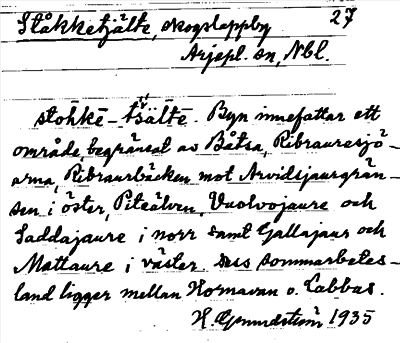 Ståkketjälte, skogslappby 27
Arjepl. sn, Nbl.
stohkē-tsälte. Byn innefattar ett
område, begränsat av Båtsa, Ribrauresjö-
arna, Ribraurbäcken mot Arvidsjaurgrän-
sen i öster, Piteälven, Vuolvojaure och
Saddajaure i norr samt Gallajaur och
Mattaure i väster. Dess sommarbetes-
land ligger mellan Hornavan o. Labbas.
H. Grundström 1935